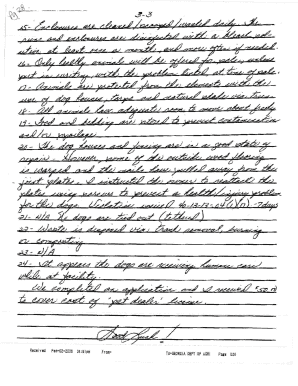 3-3
15- Enclosures are cleaned/scooped/raked daily. The
runs and enclosures are disinfected with a bleach sol-
ution at least once a month, and more often if needed.
16- Only healthy animals will be offered for sale, unless
pet is with the problem listed at time of sale.
17- Animals are protected from the elements with the
use of dog houses, tarps and natural shade structures.
18- All animals have adequate room to move about freely.
19- Food and bedding are stored to prevent contamination
and/or spoilage.
20- The dog houses and fencing are in a good state of
repair. However, some of the outside wood flooring
is warped and the nails have pulled away from the
joist plate. I instructed the owner to reattach the
plates using screws to prevent a health/injury problem
for the dogs. Violation issued 40-13-13-.04(1)( ) -7days
21- N/A No dogs are tied out (tethered)
22- Waste is disposed via: trash removal, burning
or composting
23- N/A
24- It appears the dogs are receiving humane care
while at facility.
We completed an application and I received $50.00
to cover cost of "pet dealer" license.
Good Luck!
Received
From
To-GEORGIA DEPT OF AGR
Page